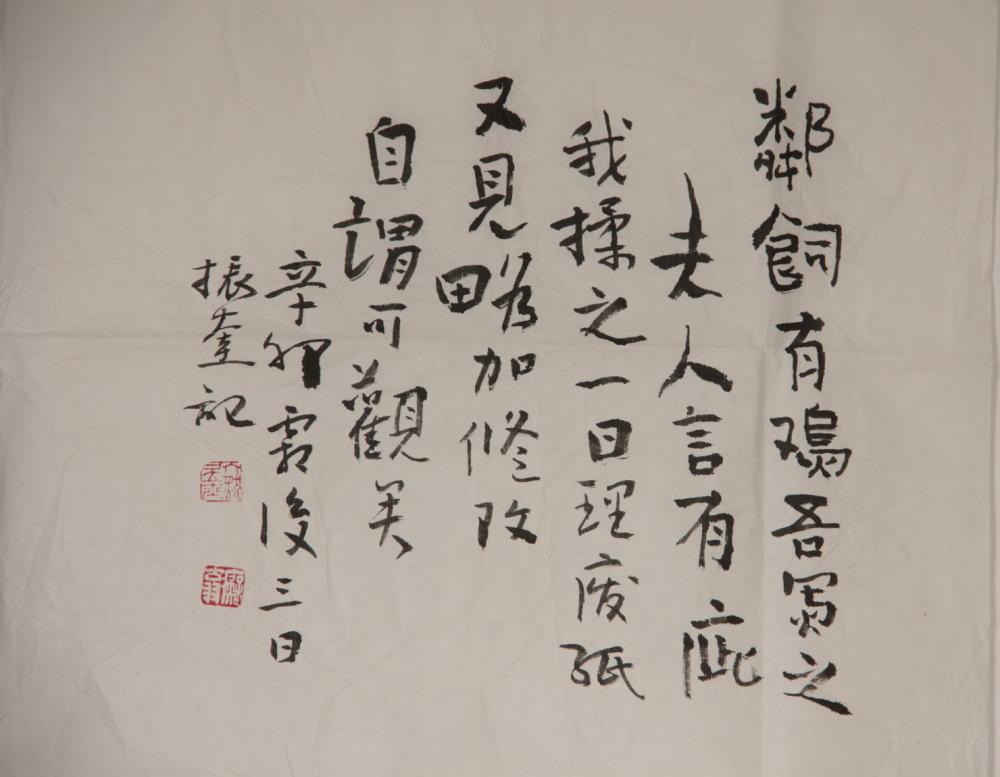 鄰飼有鵶吾寫之
夫人言有疵
我揉之一日理廢紙
又見略為加修改
自謂可觀矣
辛卯霜後三日
振奎記